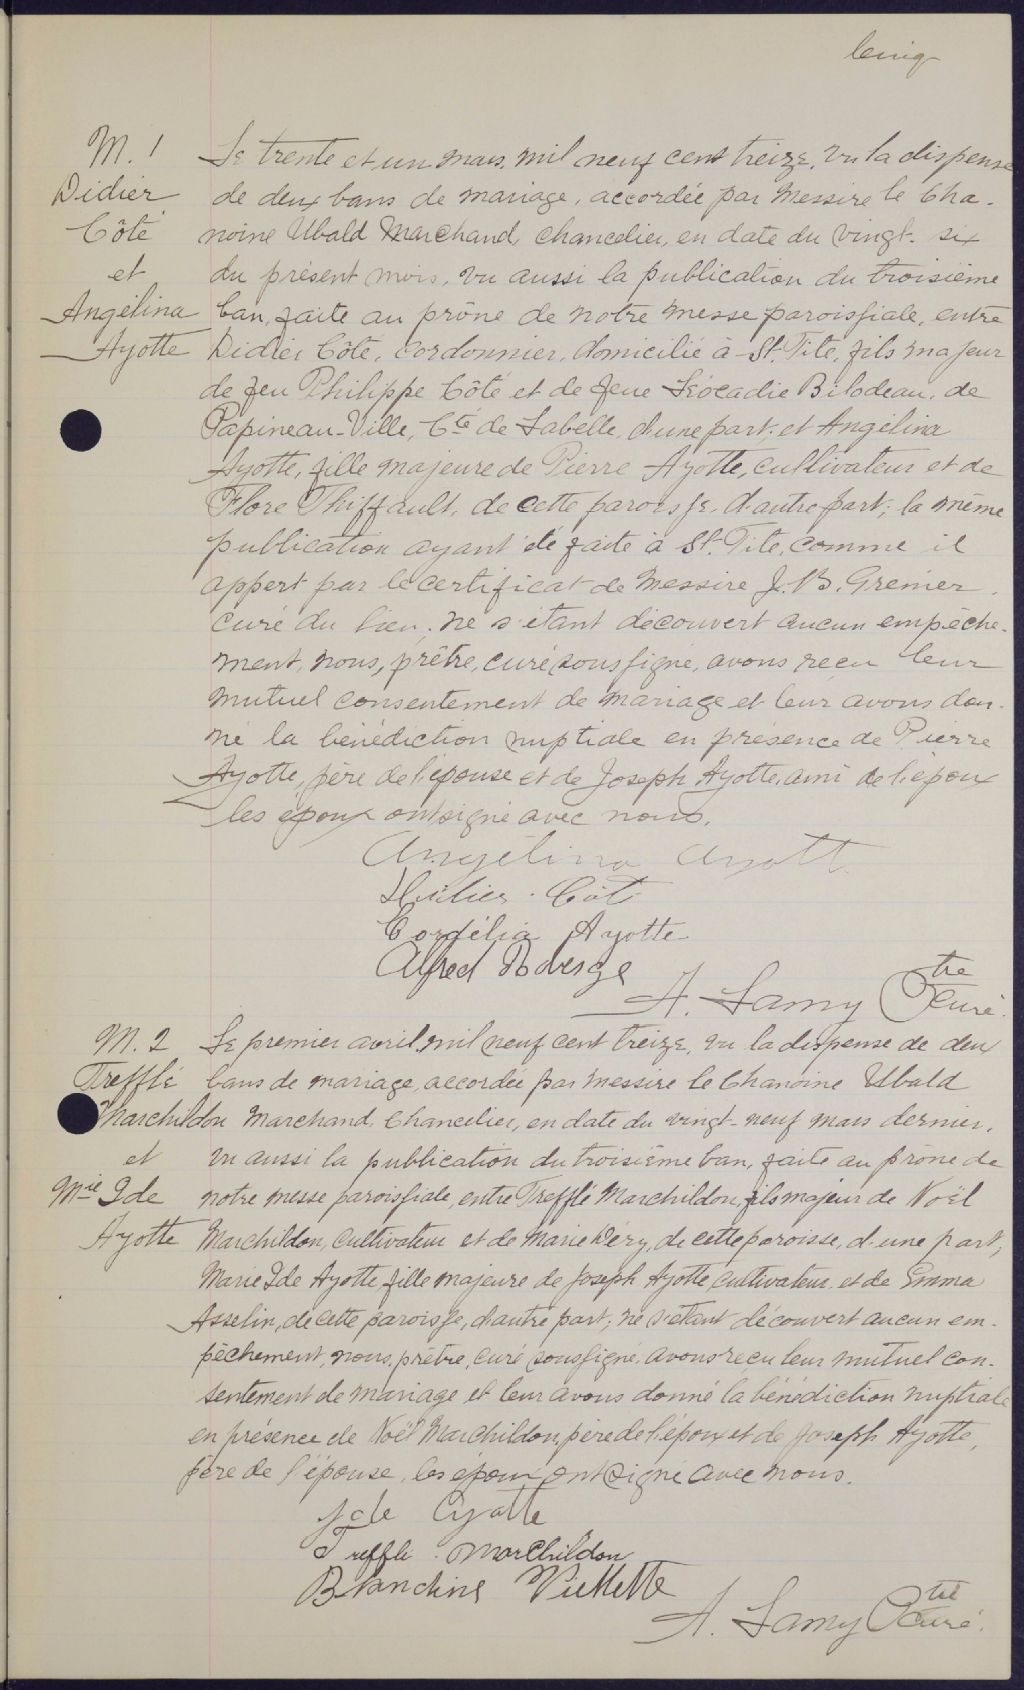 cinq
M. 1
Didier
Côté
et
Angélina
Ayotte
Le trente et un mars, mil neuf cent treize, vu la dispense
de deux bans de mariage, accordée par Messire le Cha-
noine Ubald Marchand, chancelier, en date du vingt-six
du présent mois, vu aussi la publication du troisième
ban, faite au prône de notre messe paroissiale, entre
Didier Côté, cordonnier, domicilié à St. Tite, fils majeur
de feu Philippe Côté et de feue Léocadie Bilodeau, de
Papineau-Ville, Cté de Labelle, d'une part; et Angélina
Ayotte, fille majeure de Pierre Ayotte, cultivateur et de
Flore Thiffault, de cette paroisse, d'autre part; la même
publication ayant été faite à St. Tite, comme il
appert par le certificat de Messire J. B. Grenier,
curé du lieu; ne s'étant découvert aucun empêche-
ment, nous, prêtre, curé soussigné, avons reçu leur
mutuel consentement de mariage et leur avons don-
né la bénédiction nuptiale en présence de Pierre
Ayotte, père de l'épouse et de Joseph Ayotte, ami de l'époux
les époux ont signé avec nous.
Angélina Ayott
Didier Côté
Cordélia Ayotte
Alfred
A. Lamy Ptre
Curé.
M. 2
Trefflé
Marchildon
et
Mie Ide
Ayotte
Le premier avril, mil neuf cent treize, vu la dispense de deux
bans de mariage, accordée par Messire le Chanoine Ubald
Marchand, Chancelier, en date du vingt-neuf mars dernier,
vu aussi la publication du troisième ban, faite au prône de
notre messe paroissiale, entre Trefflé Marchildon, fils majeur de Noël
Marchildon, cultivateur et de Marie Déry, de cette paroisse, d'une part;
Marie Ide Ayotte, fille majeure de Joseph Ayotte cultivateur, et de Emma
Asselin, de cette paroisse, d'autre part; ne s'étant découvert aucun em-
pêchement, nous, prêtre, curé soussigné, avons reçu leur mutuel con-
sentement de mariage et leur avons donné la bénédiction nuptiale
en présence de Noël Marchildon, père de l'époux et de Joseph Ayotte,
père de l'épouse, les époux ont signé avec nous.
Ide Ayotte
Treffle Marchildon
Blandine
A. Lamy Ptre
Curé.